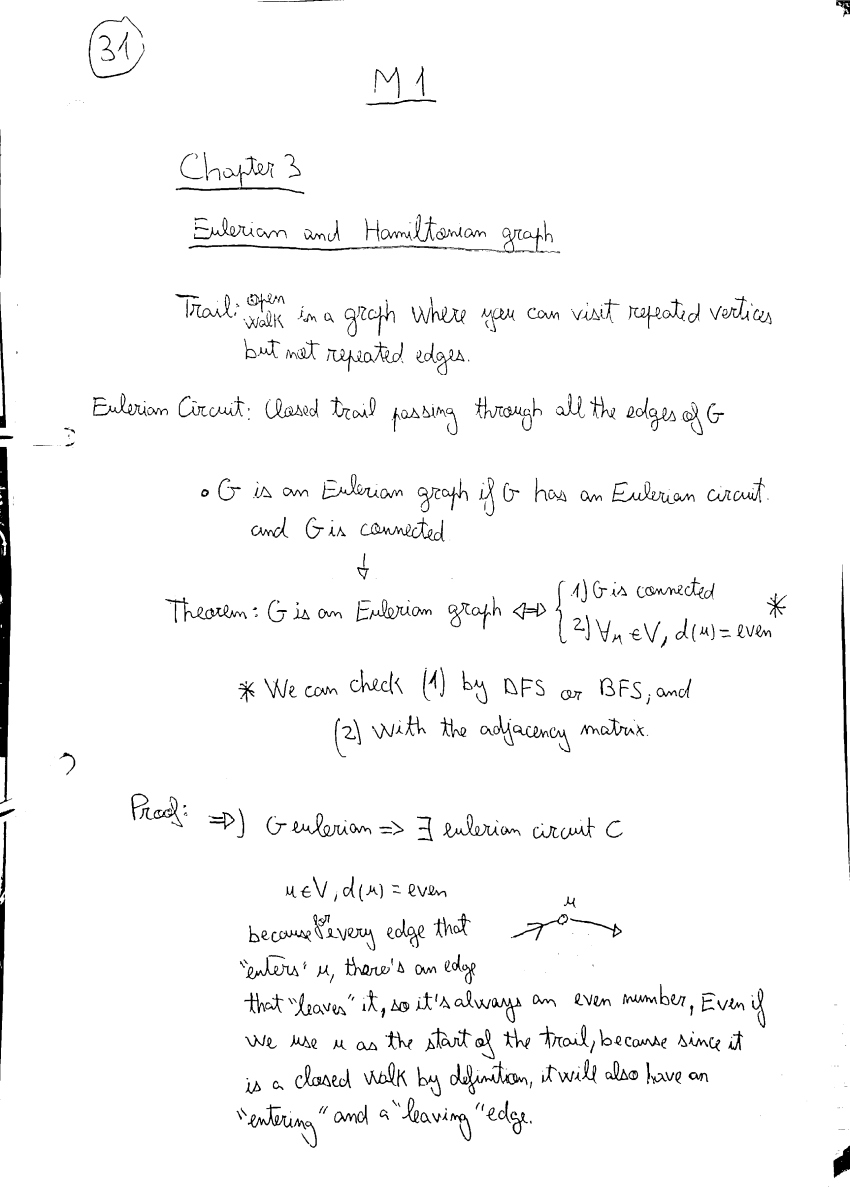 31
M1
Chapter 3
Eulerian and Hamiltonian graph
Trail: open walk in a graph where you can visit repeated vertices
but not repeated edges.
Eulerian Circuit: Closed trail passing through all the edges of G
• G is an Eulerian graph if G has an Eulerian circuit.
and G is connected
↓
Theorem: G is an Eulerian graph ⇔ { 1) G is connected
2) ∀u ∈ V, d(u) = even *
* We can check (1) by DFS or BFS, and
(2) With the adjacency matrix.
Proof: ⇒) G eulerian => ∃ eulerian circuit C
u ∈ V, d(u) = even
u
because for every edge that
"enters" u, there's an edge
that "leaves" it, so it's always an even number, Even if
we use u as the start of the trail, because since it
is a closed walk by definition, it will also have an
"entering" and a "leaving" edge.